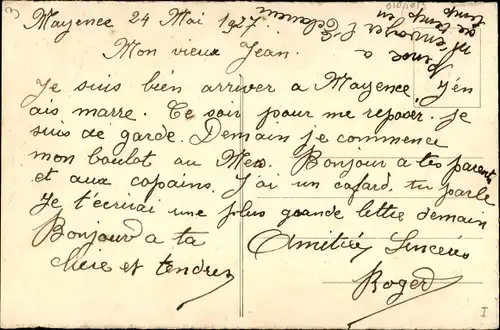 Mayence 24 Mai 1927.
Mon vieux Jean.
Je suis bien arriver a Mayence. J'en
ais marre. Ce soir pour me reposer. je
suis de garde. Demain je commence
mon boulot au Mess. Bonjour a tes parents
et aux copains. J'ai un cafard. tu parle
Je t'écrirai une plus grande lettre demain
Bonjour a ta
chère et tendre
Amitiés Sincères
Roger
pense a
m'envoyer l'
de temp en
temp
I